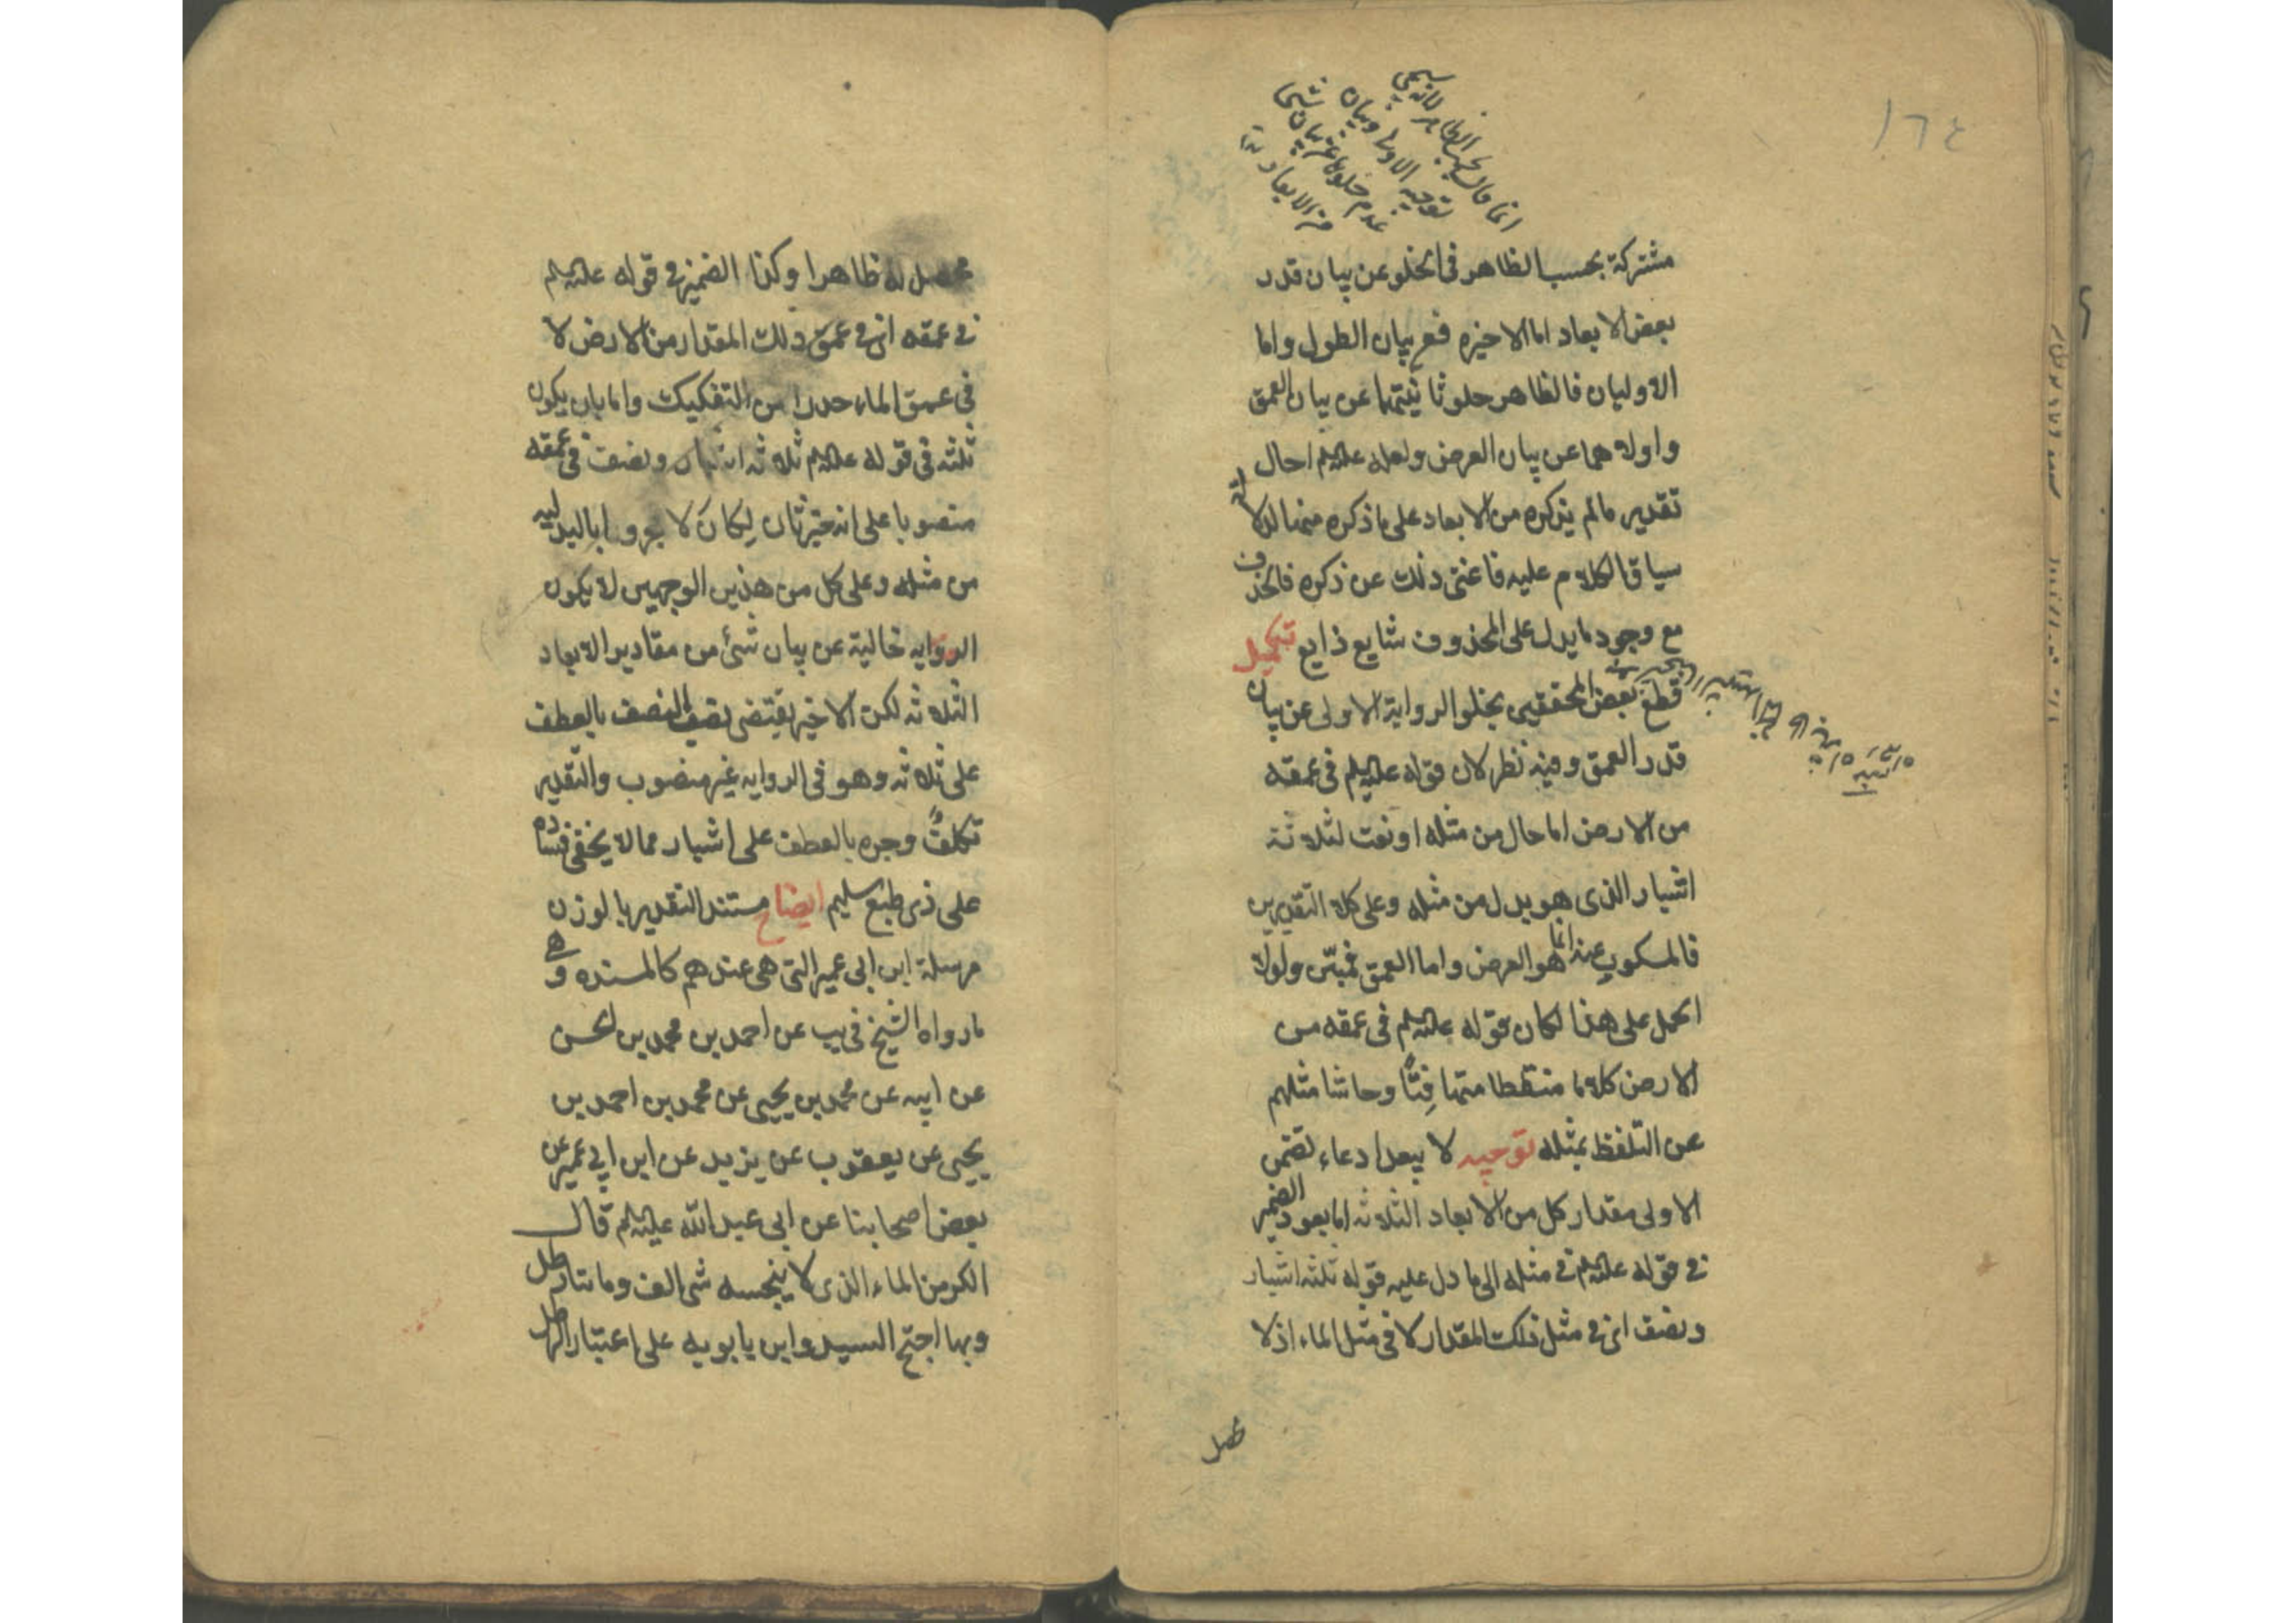 ١٦٤
انما قال بحسب الظاهر لانه سيجي
توجيه الاولى وبيان
عدم خلوها عن بيان شي
من الابعاد
مشتركة بحسب الظاهر فى الخلو عن بيان قدر
بعض الابعاد اما الاخيره فعن بيان الطول واما
الاوليان فالظاهر خلو ثانيتهما عن بيان العمق
واولاهما عن بيان العرض ولعله عليه السلم احال
تقدير مالم يذكره من الابعاد على ما ذكره منها لدلالة
سياق الكلام عليه فاغنى ذلك عن ذكره فالحذف
مع وجود ما يدل على المحذوف شايع ذايع تكميل
قطع بعض المحققين بخلو الرواية الاولى عن بيان
قدر العمق وفيه نظر لان قوله عليه السلم فى عمقه
من الارض اما حال من مثله او نعت لثلاثة
اشبار الذى هو بدل من مثله وعلى كلا التقديرين
فالمسكوت عنه انما هو العرض واما العمق فمبيّن ولولا
الحمل على هذا لكان قوله عليه السلم فى عمقه من
الارض كلاما منقطعا متهافتًا وحاشا مثلهم
عن التلفظ بمثله توجيه لا يبعد ادعاء تضمن
الاولى مقدار كل من الابعاد الثلاثه اما بعود الضمير
فى قوله عليه السلم فى مثله الى ما دل عليه قوله ثلثه اشبار
ونصف اى فى مثل ذلك المقدار لا فى مثل الماء اذ لا
محصل
محصل له ظاهرا وكذا الضمير فى قوله عليه السلم
فى عمقه اى فى عمق ذلك المقدار من الارض لا
فى عمق الماء حذرا من التفكيك واما بان يكون
ثلثه فى قوله عليه السلم ثلاثه اشبار ونصف فى عمقه
منصوبا على انه خبر ثان لكان لا مجرورا بالبدليه
من مثله وعلى كل من هذين الوجهين لا يكون
الروايه خالية عن بيان شئ من مقادير الابعاد
الثلاثه لكن الاخير يقتضى نصب النصف بالعطف
على ثلاثه وهو فى الروايه غير منصوب والتقدير
تكلفٌ وجره بالعطف على اشبار مما لا يخفى فساده
على ذى طبع سليم ايضاح مستند التقدير بالوزن
مرسلة ابن ابى عمير التى هى عندهم كالمسنده وهى
ما رواه الشيخ فى يب عن احمد بن محمد بن الحسن
عن ابيه عن محمد بن يحيى عن محمد بن احمد بن
يحيى عن يعقوب عن يزيد عن ابن ابى عمير عن
بعض اصحابنا عن ابى عبد الله عليه السلم قال
الكر من الماء الذى لا ينجسه شى الف ومائتا رطل
وبها احتج السيد وابن بابويه على اعتبار الرطل